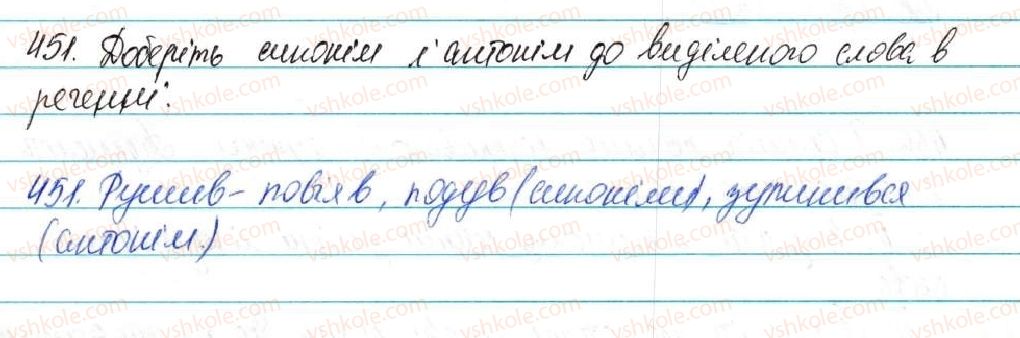 451. Доберіть синонім і антонім до виділеного слова в
реченні:
451. Рушив - повіяв, подув (синоніми), зупинився
(антонім)